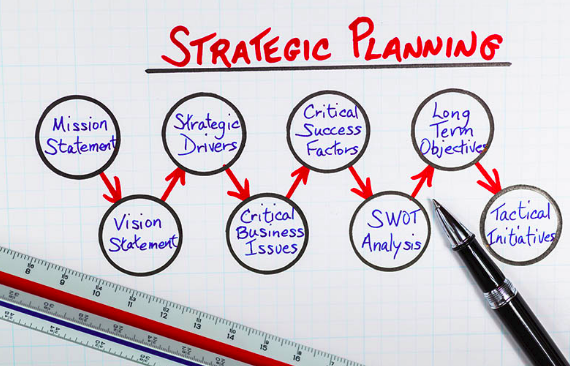 STRATEGIC PLANNING
Mission
Statement
Vision
Statement
Strategic
Drivers
Critical
Business
Issues
Critical
Success
Factors
SWOT
Analysis
Long
Term
Objectives
Tactical
Initiatives
8
9
10
11
12
13
14
15
16